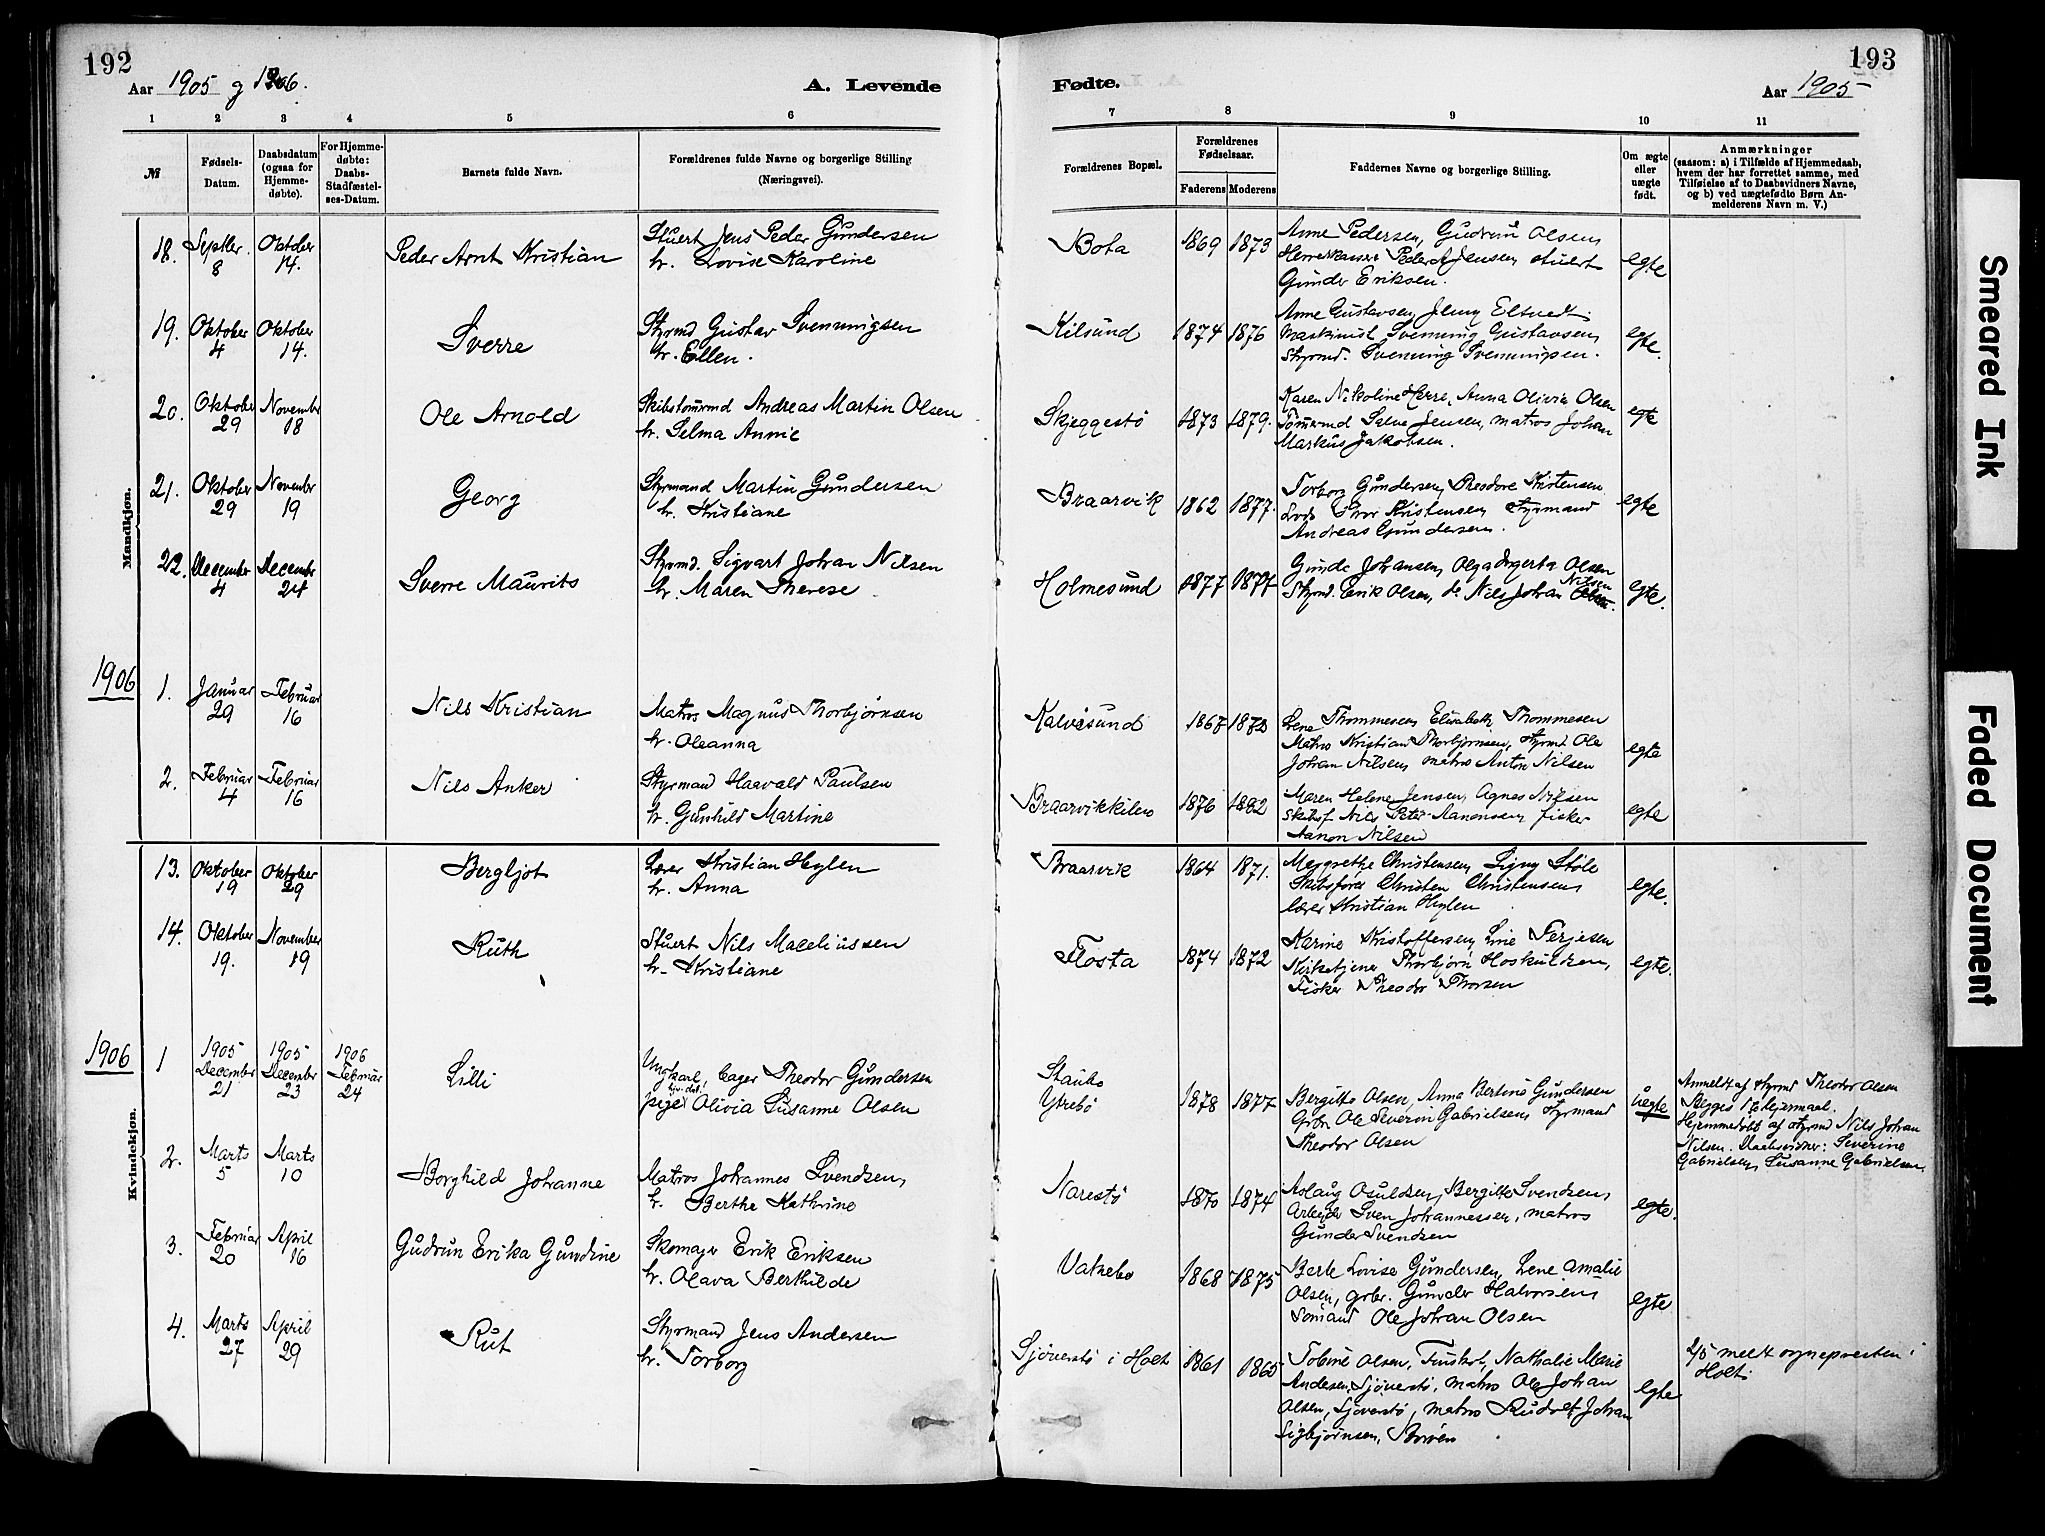 192
Aar 1905 g 1906.
A. Levende
Fødte.
193
Aar 1905
1 2 3 4 5 6 7 8 9 10 11
№
Fødsels-
Datum.
Daabsdatum
(ogsaa for
Hjemme-
døbte).
For Hjemme-
døbte:
Daabs-
Stadfæstel-
ses-Datum.
Barnets fulde Navn.
Forældrenes fulde Navne og borgerlige Stilling
(Næringsvei).
Forældrenes Bopæl.
Forældrenes
Fødselsaar.
Faderens Moderens
Faddernes Navne og borgerlige Stilling.
Om ægte
eller
uægte
født.
Anmærkninger
(saasom: a) i Tilfælde af Hjemmedaab,
hvem der har forrettet samme, med
Tilføielse af to Daabsvidners Navne,
og b) ved uægtefødte Børn An-
melderens Navn m. V.)
Mandkjøn.
18. Septbr. 8
Oktober 14.
Peder Arnt Kristian
Stuert Jens Peder Gundersen
h. Lovise Karoline
Bota
1869 1873
Anne Pedersen, Gudrun Olsen,
Peder A Jensen, stuert
Gunder Eriksen.
egte
19. Oktober 4
Oktober 14.
Sverre
Styrmd Gustav Svenningsen
h. Ellen.
Kilsund
1874 1876
Anne Gustavsen, Jenny Eltvedt
Maskinist Svenning Gustavsen,
Styrmd. Svenning Svenningsen.
egte.
20. Oktober 29
November 18
Ole Arnold
Skibstømrmd Andreas Martin Olsen
h. Selma Annie
Skjeggestø
1873 1879.
Karen Nikoline Herre, Anna Olivia Olsen
Tømrmd Salve Jensen, matros Johan
Markus Jakobsen.
egte
21. Oktober 29
November 19
Georg
Styrmand Martin Gundersen
h. Kristiane
Braarvik
1862 1877.
Torborg Gundersen, Theodore Kristensen
Lods Thor Kristensen, Styrmand
Andreas Gundersen.
egte
22. December 4
December 24
Sverre Maurits
Styrmd. Sigvart Johan Nilsen
h. Maren Therese.
Holmesund
1877 1877
Gunda Johansen, Olga Ingerta Olsen
Styrmd. Erik Olsen, do Nils Johan Nilsen
egte.
1906
1. Januar 29
Februar 16
Nils Kristian
Matros Magnus Thorbjørnsen
h. Oleanna
Kalvøsund
1867 1873
Lene Thommesen, Elisabeth Thommesen
Matros Kristian Thorbjørnsen, styrmd Ole
Johan Nilsen, matros Anton Nilsen
egte
2. Februar 4
Februar 16
Nils Anker
Styrmand Haavald Paulsen
h. Gunhild Martine
Braarvikkilen
1876 1882
Maren Helene Jensen, Agnes Nilsen
Skibsf. Nils Peter Aanonsen, fisker
Aanon Nilsen
egte
Kvindekjøn.
13. Oktober 19
Oktober 29
Bergljot
Lærer Kristian Heglen
h. Anna
Braarvik
1864 1871.
Margrethe Christensen, Signy Støle
Skibsfører Christen Christensen,
lærer Kristian Heglen
egte.
14. Oktober 19.
November 19
Ruth
Stuert Nils Maceliussen
h. Kristiane
Flosta
1874 1872
Karine Kristoffersen, Line Terjesen
Kirketjener Thorbjørn Hoskuldsen,
Fisker Theodor Thorsen
egte.
1906
1 1905 December 21
1905 December 23
1906 Februar 24
Lilli
Ungkarl, bager Theodor Gundersen
pige Olivia Susanne Olsen
Staubo
Ytrebø
1878 1877
Bergitte Olsen, Anna Bertine Gundersen
Grbr. Ole Severin Gabrielsen, styrmand
Theodor Olsen
uegte
Anmeldt af styrmd Theodor Olsen
Begges 1ste leiermaal.
Hjemmedøbt af styrmd Nils Johan
Nilsen. Daabsvidner: Severine
Gabrielsen, Susanne Gabrielsen
2. Marts 5
Marts 10
Borghild Johanne
Matros Johannes Svendsen,
h. Berthe Kathrine
Narestø
1870 1874
Aslaug Osuldsen, Bergitte Svendsen,
Arbeider Sven Johannessen, matros
Gunder Svendsen
egte.
3. Februar 20
April 16
Gudrun Erika Gundine
Skomager Erik Eriksen
h. Olava Berthilde
Vatnebo
1868 1875
Berte Lovise Gundersen, Lene Amalie
Olsen, grbr. Gunder Halvorsen,
Sømand Ole Johan Olsen
egte
4. Marts 27
April 29
Rut
Styrmand Jens Andersen
h. Torborg
Sjøverstø i Holt
1861 1865
Tobine Olsen, Nathalie Marie
Andersen, Sjøverstø, matros Ole Johan
Olsen, Sjøverstø, matros Rudolf Johan
Sigbjørnsen, Borøen
egte
2/5 meldt sognepresten i
Holt
Smeared Ink
Faded Document